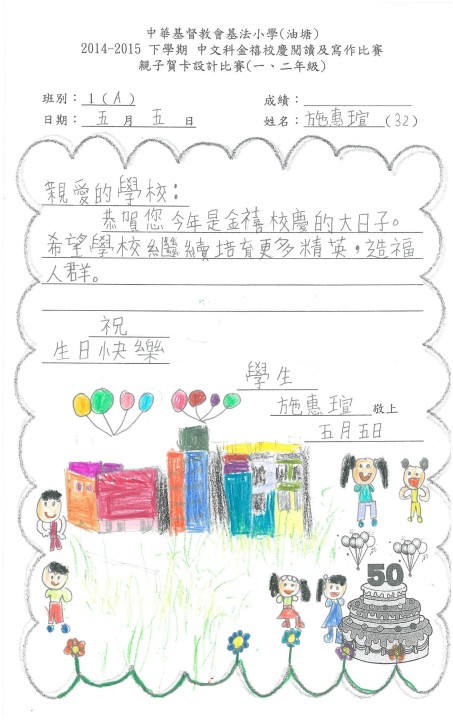 中華基督教會基法小學(油塘)
2014-2015 下學期 中文科金禧校慶閱讀及寫作比賽
親子賀卡設計比賽(一、二年級)
班別：1(A) 成績：
日期：五月五日 姓名：施惠瑄(32)
親愛的學校：
恭賀您今年是金禧校慶的大日子。
希望學校繼續培育更多精英，造福
人群。
祝
生日快樂
學生
施惠瑄 敬上
五月五日
50